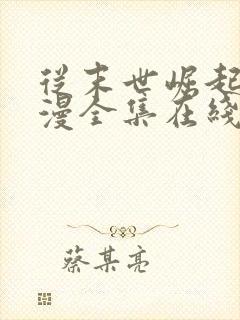 從末世崛起
漫全集在綫
蔡某亮